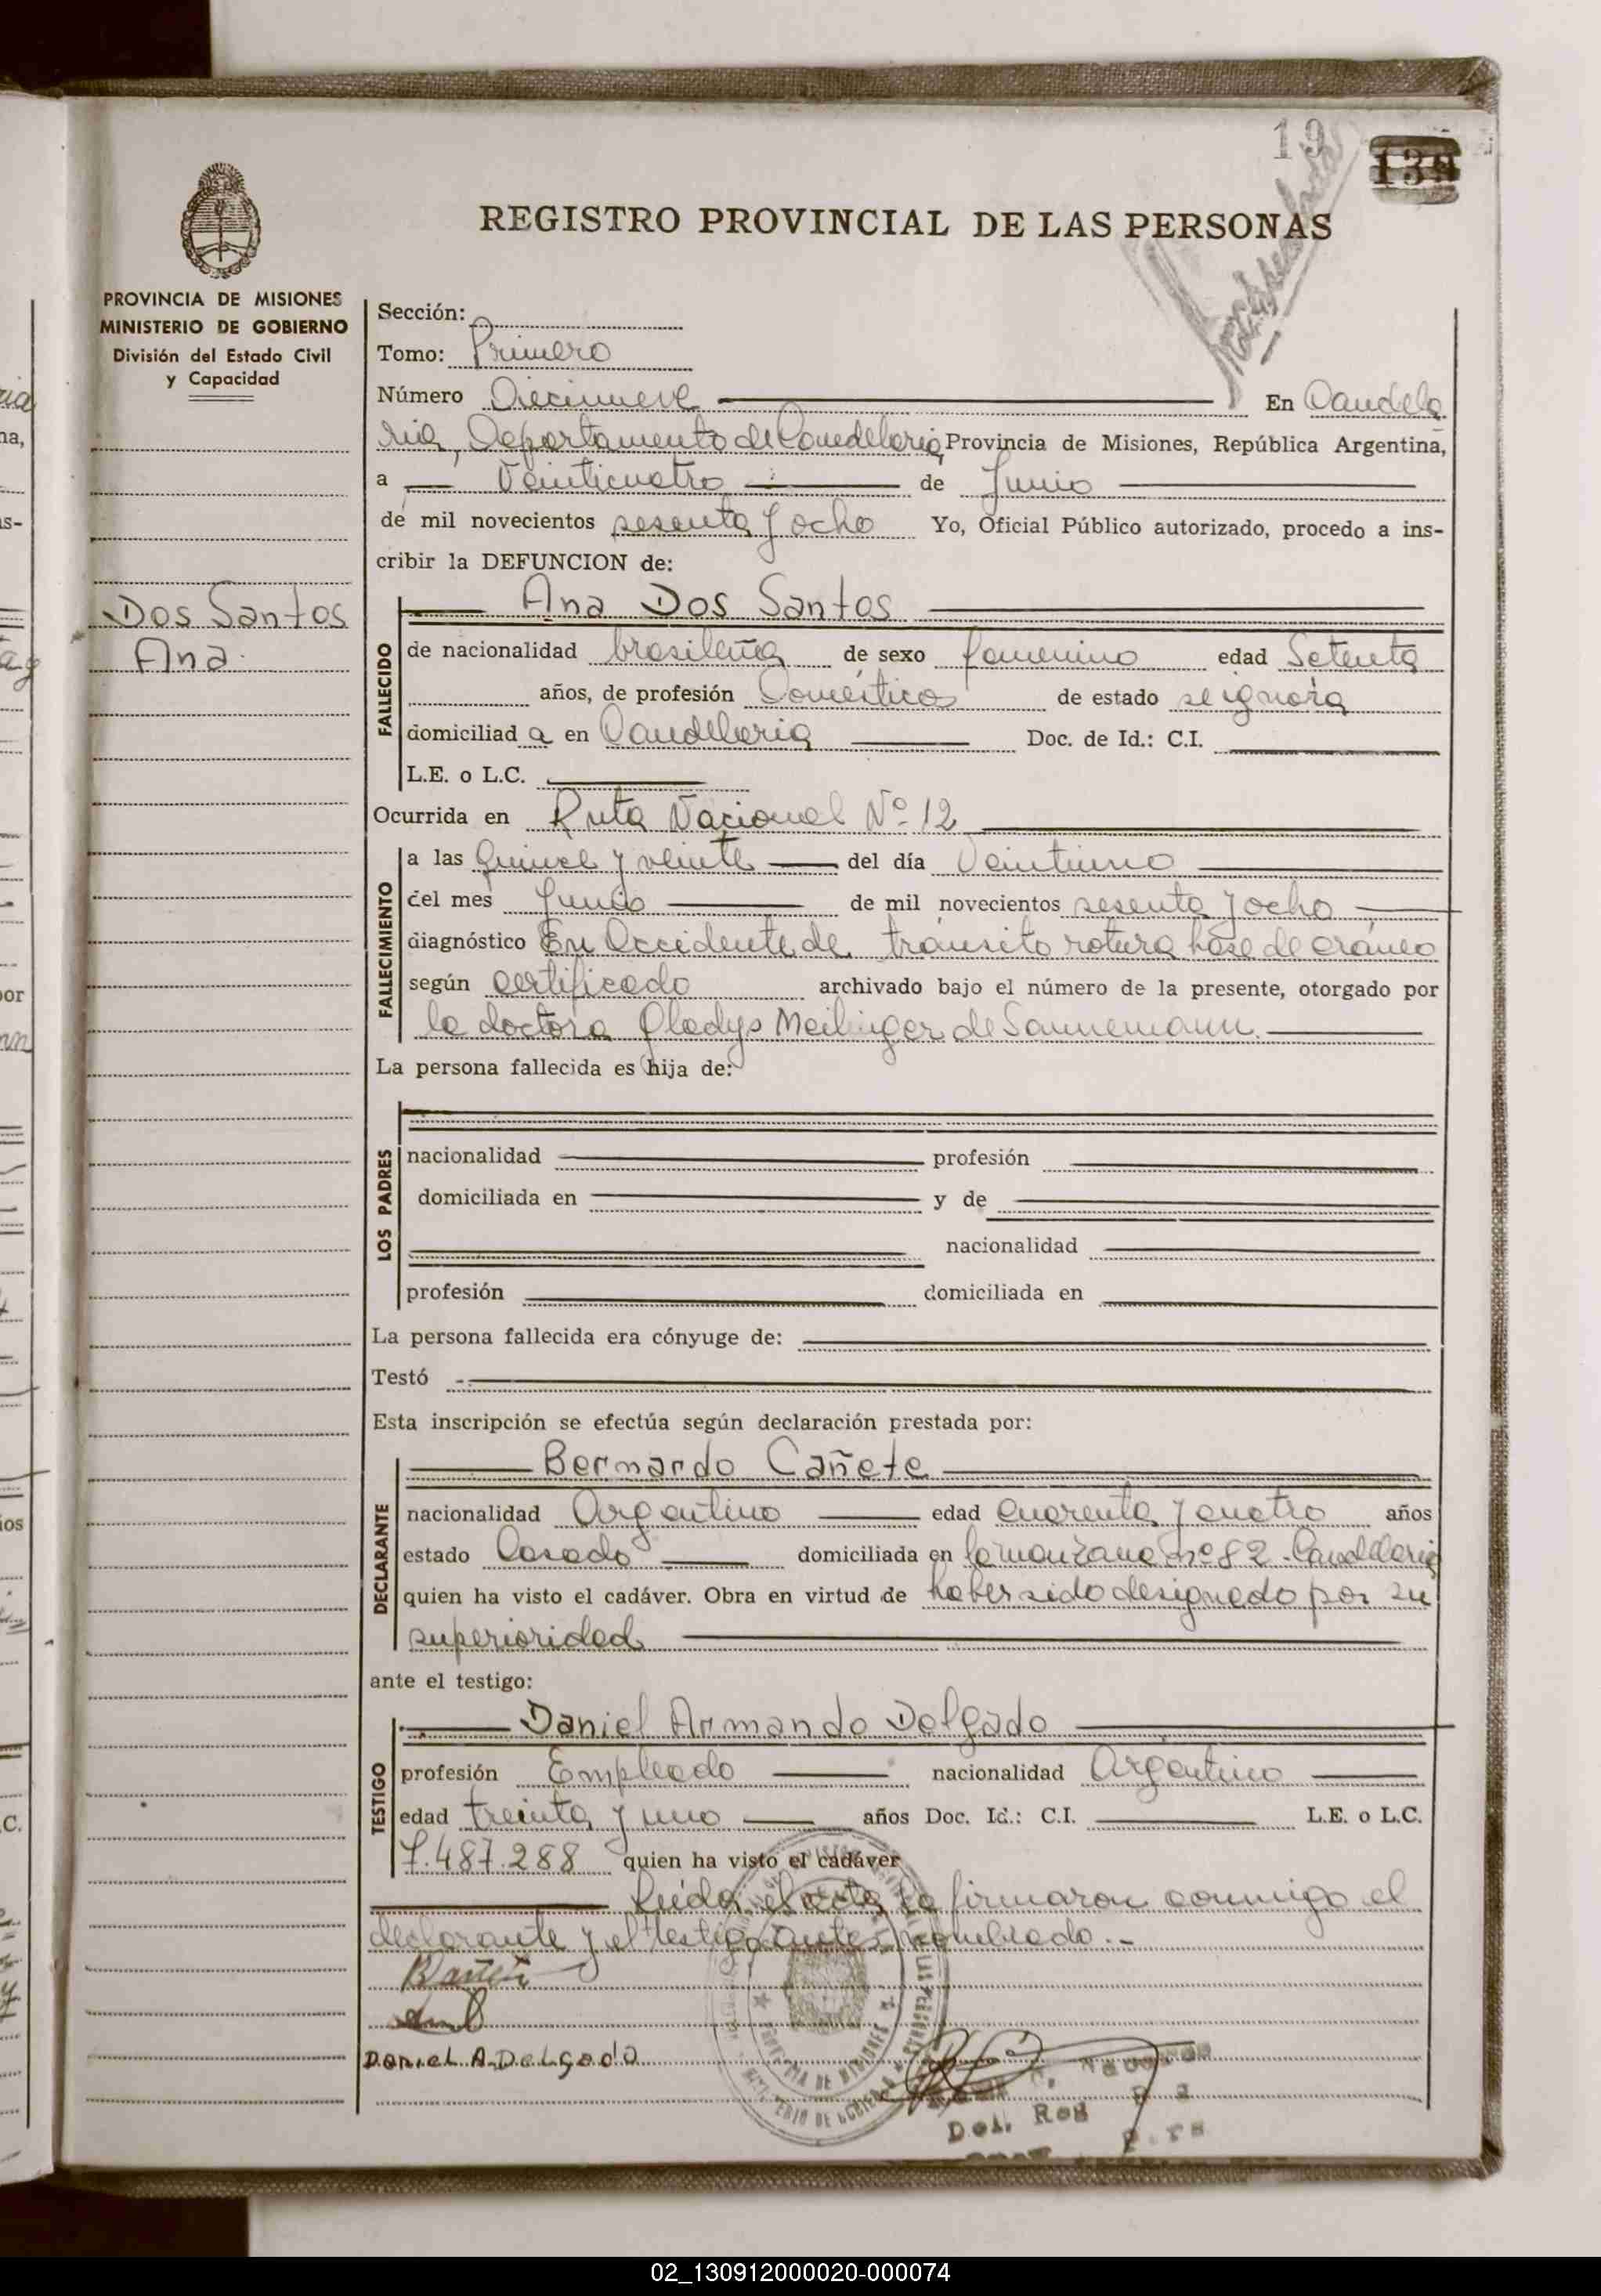 19
REGISTRO PROVINCIAL DE LAS PERSONAS
PROVINCIA DE MISIONES
MINISTERIO DE GOBIERNO
División del Estado Civil
y Capacidad
Dos Santos
Ana
Sección:
Tomo: Primero
Número Diecinueve En Candela
ria, Departamento de Candelaria Provincia de Misiones, República Argentina,
a Veinticuatro de Junio
de mil novecientos sesenta y ocho Yo, Oficial Público autorizado, procedo a ins-
cribir la DEFUNCION de:
Ana Dos Santos
FALLECIDO
de nacionalidad brasileña de sexo femenino edad Setenta
años, de profesión Domésticos de estado se ignora
domiciliad a en Candelaria Doc. de Id.: C.I.
L.E. o L.C.
Ocurrida en Ruta Nacional Nº 12
FALLECIMIENTO
a las Quince y veinte del día Veintiuno
del mes Junio de mil novecientos sesenta y ocho
diagnóstico En Accidente de tránsito rotura base de cráneo
según certificado archivado bajo el número de la presente, otorgado por
la doctora Gladys Meilinger de Sannemann.
La persona fallecida es hija de:
LOS PADRES
nacionalidad profesión
domiciliada en y de
nacionalidad
profesión domiciliada en
La persona fallecida era cónyuge de:
Testó
Esta inscripción se efectúa según declaración prestada por:
Bernardo Cañete
DECLARANTE
nacionalidad Argentino edad cuarenta y cuatro años
estado Casado domiciliada en la manzana nº 82 - Candelaria
quien ha visto el cadáver. Obra en virtud de haber sido designado por su
superioridad
ante el testigo:
Daniel Armando Delgado
TESTIGO
profesión Empleado nacionalidad Argentino
edad treinta y uno años Doc. Id.: C.I. L.E. o L.C.
7.487.288 quien ha visto el cadáver
Leída el acta la firmaron conmigo el
declarante y el testigo antes nombrado.-
Daniel A. Delgado
PROVINCIA DE MISIONES
MINISTERIO DE GOBIERNO
Del. Reg
02_130912000020-000074